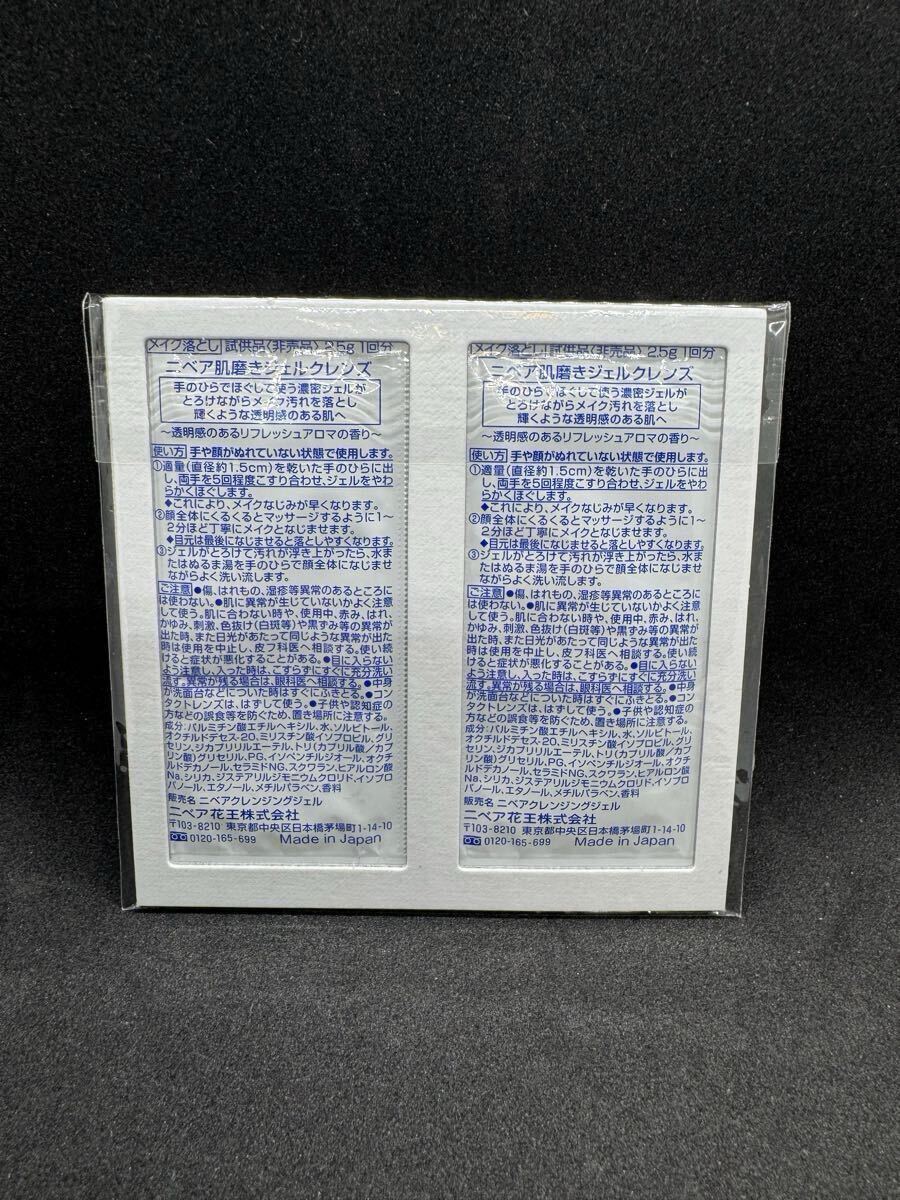 メイク落とし 試供品〈非売品〉 2.5g 1回分
ニベア肌磨きジェルクレンズ
手のひらでほぐして使う濃密ジェルが
とろけながらメイク汚れを落とし
輝くような透明感のある肌へ
～透明感のあるリフレッシュアロマの香り～
使い方 手や顔がぬれていない状態で使用します。
①適量(直径約1.5cm)を乾いた手のひらに出
し、両手を5回程度こすり合わせ、ジェルをやわ
らかくほぐします。
◆これにより、メイクなじみが早くなります。
②顔全体にくるくるとマッサージするように1～
2分ほど丁寧にメイクとなじませます。
◆目元は最後になじませると落としやすくなります。
③ジェルがとろけて汚れが浮き上がったら、水ま
たはぬるま湯を手のひらで顔全体になじませ
ながらよく洗い流します。
ご注意 ●傷、はれもの、湿疹等異常のあるところに
は使わない。●肌に異常が生じていないかよく注意
して使う。肌に合わない時や、使用中、赤み、はれ、
かゆみ、刺激、色抜け(白斑等)や黒ずみ等の異常が
出た時、また日光があたって同じような異常が出た
時は使用を中止し、皮フ科医へ相談する。使い続
けると症状が悪化することがある。●目に入らない
よう注意し、入った時は、こすらずにすぐに充分洗い
流す。異常が残る場合は、眼科医へ相談する。●中身
が洗面台などについた時はすぐにふきとる。●コン
タクトレンズは、はずして使う。●子供や認知症の
方などの誤食等を防ぐため、置き場所に注意する。
成分:パルミチン酸エチルヘキシル、水、ソルビトール、
オクチルドデセス-20、ミリスチン酸イソプロピル、グリ
セリン、ジカプリリルエーテル、トリ(カプリル酸/カプ
リン酸)グリセリル、PG、イソペンチルジオール、オクチ
ルドデカノール、セラミドNG、スクワラン、ヒアルロン酸
Na、シリカ、ジステアリルジモニウムクロリド、イソプロ
パノール、エタノール、メチルパラベン、香料
販売名 ニベアクレンジングジェル
ニベア花王株式会社
〒103-8210 東京都中央区日本橋茅場町1-14-10
0120-165-699 Made in Japan
メイク落とし 試供品〈非売品〉 2.5g 1回分
ニベア肌磨きジェルクレンズ
手のひらでほぐして使う濃密ジェルが
とろけながらメイク汚れを落とし
輝くような透明感のある肌へ
～透明感のあるリフレッシュアロマの香り～
使い方 手や顔がぬれていない状態で使用します。
①適量(直径約1.5cm)を乾いた手のひらに出
し、両手を5回程度こすり合わせ、ジェルをやわ
らかくほぐします。
◆これにより、メイクなじみが早くなります。
②顔全体にくるくるとマッサージするように1～
2分ほど丁寧にメイクとなじませます。
◆目元は最後になじませると落としやすくなります。
③ジェルがとろけて汚れが浮き上がったら、水ま
たはぬるま湯を手のひらで顔全体になじませ
ながらよく洗い流します。
ご注意 ●傷、はれもの、湿疹等異常のあるところに
は使わない。●肌に異常が生じていないかよく注意
して使う。肌に合わない時や、使用中、赤み、はれ、
かゆみ、刺激、色抜け(白斑等)や黒ずみ等の異常が
出た時、また日光があたって同じような異常が出た
時は使用を中止し、皮フ科医へ相談する。使い続
けると症状が悪化することがある。●目に入らない
よう注意し、入った時は、こすらずにすぐに充分洗い
流す。異常が残る場合は、眼科医へ相談する。●中身
が洗面台などについた時はすぐにふきとる。●コン
タクトレンズは、はずして使う。●子供や認知症の
方などの誤食等を防ぐため、置き場所に注意する。
成分:パルミチン酸エチルヘキシル、水、ソルビトール、
オクチルドデセス-20、ミリスチン酸イソプロピル、グリ
セリン、ジカプリリルエーテル、トリ(カプリル酸/カプ
リン酸)グリセリル、PG、イソペンチルジオール、オクチ
ルドデカノール、セラミドNG、スクワラン、ヒアルロン酸
Na、シリカ、ジステアリルジモニウムクロリド、イソプロ
パノール、エタノール、メチルパラベン、香料
販売名 ニベアクレンジングジェル
ニベア花王株式会社
〒103-8210 東京都中央区日本橋茅場町1-14-10
0120-165-699 Made in Japan